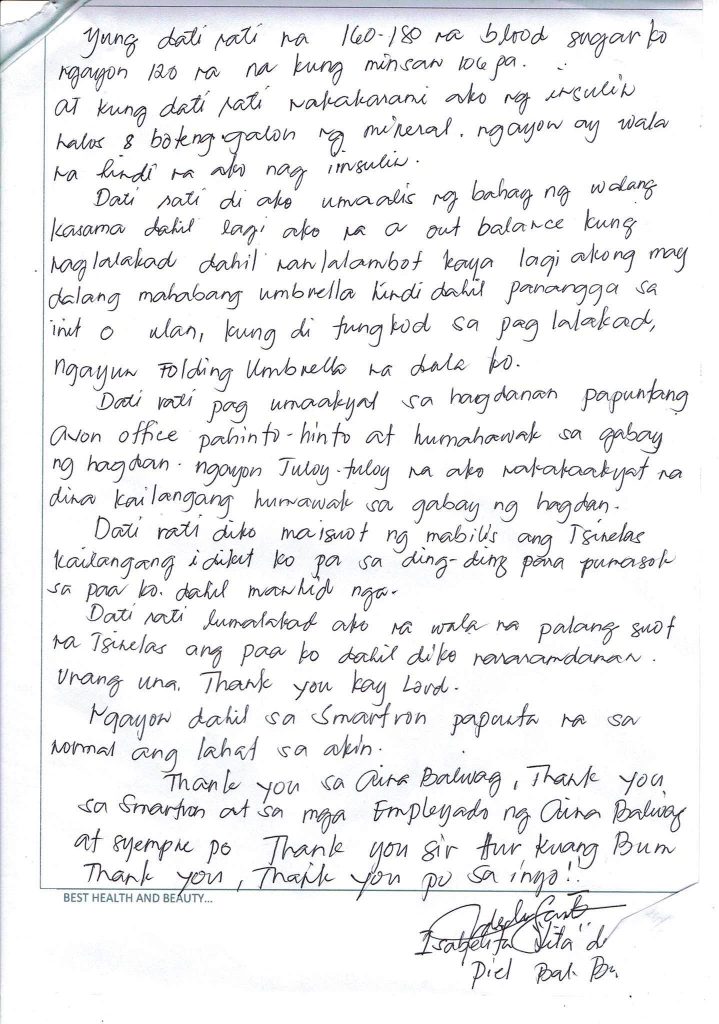 Yung dati rati na 160-180 na blood sugar ko
ngayon 120 na na kung minsan 106 pa.
at kung dati rati nakakarami ako ng insulin
halos 8 boteng galon ng mineral. ngayon ay wala
na hindi na ako nag iinsulin.
Dati rati di ako umaalis ng bahay ng walang
kasama dahil lagi ako na a out balance kung
naglalakad dahil nanlalambot kaya lagi akong may
dalang mahabang umbrella hindi dahil panangga sa
init o ulan, kung di tungkod sa pag lalakad,
ngayun Folding Umbrella na dala ko.
Dati rati pag umaakyat sa hagdanan papuntang
avon office pahinto-hinto at humahawak sa gabay
ng hagdan. ngayon Tuloy-tuloy na ako nakakaakyat na
dina kailangang humawak sa gabay ng hagdan.
Dati rati diko maisuot ng mabilis ang Tsinelas
kailangang idikit ko pa sa ding-ding para pumasok
sa paa ko. dahil manhid nga.
Dati rati lumalakad ako na wala na palang suot
na Tsinelas ang paa ko dahil diko nararamdanan.
Unang una. Thank you kay Lord.
Ngayon dahil sa Smartron papunta na sa
normal ang lahat sa akin.
Thank you sa Aina Baliwag, Thank you
sa Smartron at sa mga Empleyado ng Aina Baliwag
at syempre po Thank you sir Kuang Bum
Thank you, Thank you po sa inyo!!
BEST HEALTH AND BEAUTY...
Isabelita "Lita" d
Piel Bal. Bu